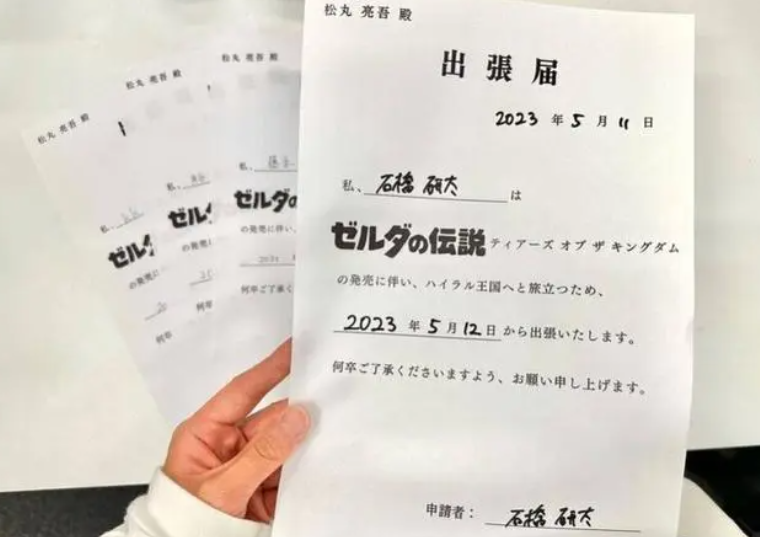 松丸 亮吾 殿
出張届
2023 年 5 月 11 日
私、石橋 研太 は
ゼルダの伝説 ティアーズ オブ ザ キングダム
の発売に伴い、ハイラル王国へと旅立つため、
2023 年 5 月 12 日 から出張いたします。
何卒ご了承くださいますよう、お願い申し上げます。
申請者： 石橋 研太
松丸 亮吾 殿
私、
ゼルダの
の発売に伴い、
何卒ご了承く
松丸 亮吾 殿
私、
ゼル
の発売に
何卒
松丸 亮吾 殿
私、
ゼルダ
の発売に伴
何卒